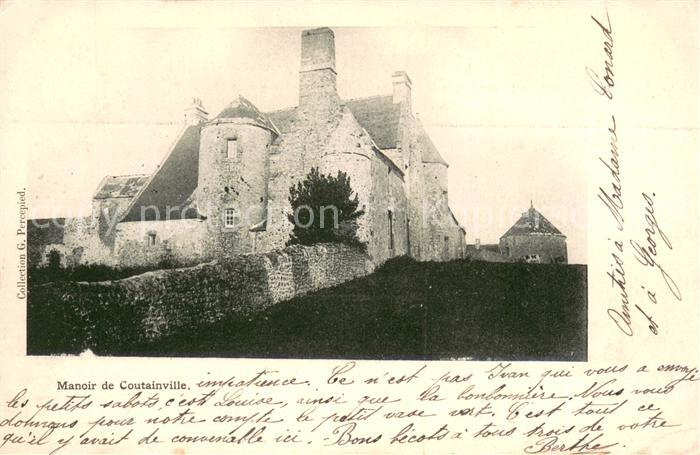 Collection G. Percepied.
Manoir de Coutainville.
impatience. Ce n'est pas Ivan qui vous a envoyé
les petits sabots, c'est Louise, ainsi que la bonbonnière. Nous vous
donnons pour notre compte le petit vase vert. C'est tout ce
qu'il y avait de convenable ici. Bons bécots à tous trois de votre
Berthe.
Amitiés à Madame
et à Georges.